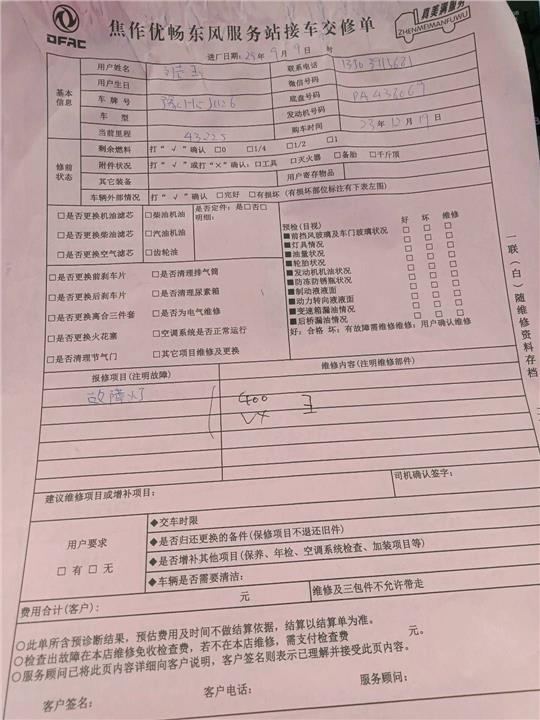 DFAC
焦作优畅东风服务站接车交修单
真美满服务
ZHENMEIMANFUWU
进厂日期: 25年 9月 9日 时
基本信息
用户姓名 联系电话
用户生日 微信号码
车牌号 底盘号码 PA438069
车型 发动机号码
当前里程 43225 购车时间 23年12月19日
修前状态
剩余燃料 打"√"确认 □0 □1/4 □1/2 □1
附件状况 打"√"或打"×"确认: □工具 □灭火器 □备胎 □千斤顶
其它装备 用户寄存物品
车辆外部情况 打"√"确认 □完好 □有损坏 (有损坏部位标注有下表左图)
□是否更换机油滤芯 □柴油机油 是否定件: 是□否□
□是否更换柴油滤芯 □汽油机油 明细:
□是否更换空气滤芯 □齿轮油
□是否更换前刹车片 □是否清理排气筒
□是否更换后刹车片 □是否清理尿素箱
□是否更换离合三件套 □是否为电气维修
□是否更换火花塞 □空调系统是否正常运行
□是否清理节气门 □其它项目维修及更换
预检(目视) 好 坏 维修
■前挡风玻璃及车门玻璃状况 □ □ □
■灯具情况 □ □ □
■油量状况 □ □ □
■轮胎状况 □ □ □
■发动机机油状况 □ □ □
■防冻防锈瓶状况 □ □ □
■制动液液面 □ □ □
■动力转向液液面 □ □ □
■变速箱漏油情况 □ □ □
■后桥漏油情况 □ □ □
好: 合格 坏: 有故障需维修维修: 用户确认维修
一联(白)随维修资料存档
报修项目(注明故障) 维修内容(注明维修部件)
故障灯 400
王
建议维修项目或增补项目: 司机确认签字:
用户要求
□有 □无
◆交车时限
◆是否归还更换的备件(保修项目不退还旧件)
◆是否增补其他项目(保养、年检、空调系统检查、加装项目等)
◆车辆是否需要清洁:
费用合计(客户): 元 维修及三包件不允许带走
○此单所含预诊断结果，预估费用及时间不做结算依据，结算以结算单为准。
○检查出故障在本店维修免收检查费，若不在本店维修，需支付检查费 元。
○服务顾问已将此页内容详细向客户说明，客户签名则表示已理解并接受此页内容。
客户签名: 客户电话: 服务顾问: